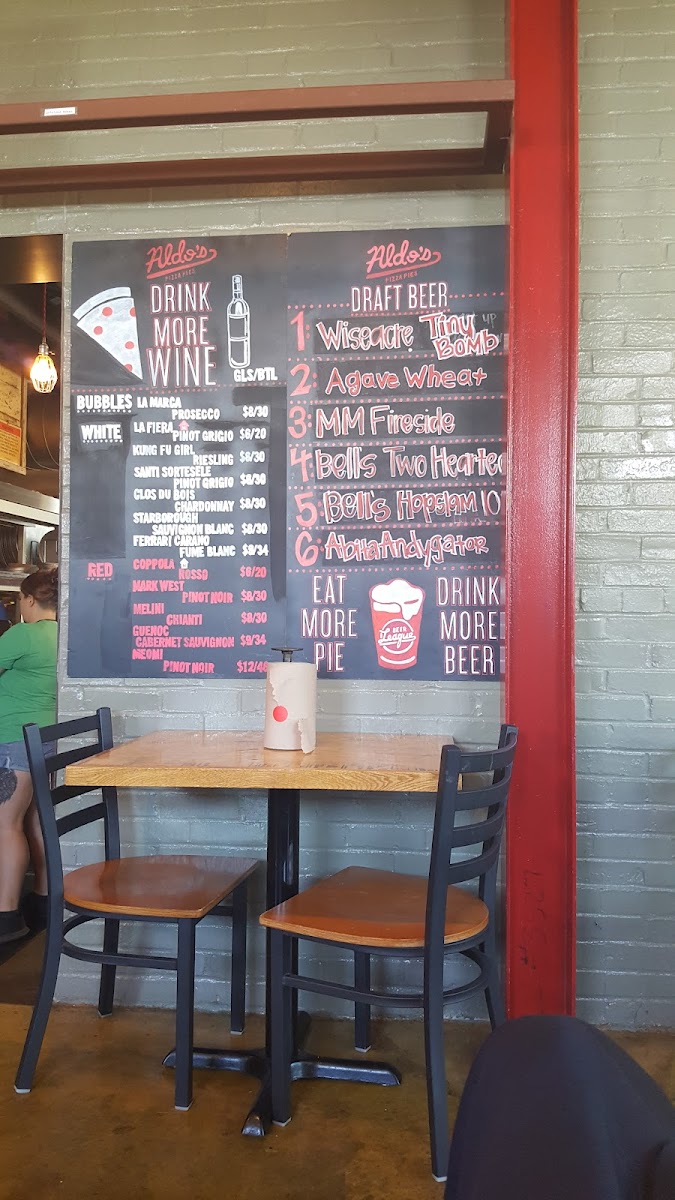 Aldo's
PIZZA PIES
DRINK
MORE
WINE
GLS/BTL
BUBBLES
LA MARCA
PROSECCO $8/30
WHITE
LA FIERA
PINOT GRIGIO $6/20
KUNG FU GIRL
RIESLING $8/30
SANTI SORTESELE
PINOT GRIGIO $8/30
CLOS DU BOIS
CHARDONNAY $8/30
STARBOROUGH
SAUVIGNON BLANC $8/30
FERRARI CARANO
FUME BLANC $9/34
RED
COPPOLA
ROSSO $6/20
MARK WEST
PINOT NOIR $8/30
MELINI
CHIANTI $8/30
GUENOC
CABERNET SAUVIGNON $9/34
MEOMI
PINOT NOIR
Aldo's
PIZZA PIES
DRAFT BEER
1: Wiseacre Tiny
BOMB
2: Agave Wheat
3: MM Fireside
4: Bell's Two Hearted
5: Bell's Hopslam 10
6: Abita Andygator
EAT
MORE
PIE
BEER
League
DRINK
MORE
BEER